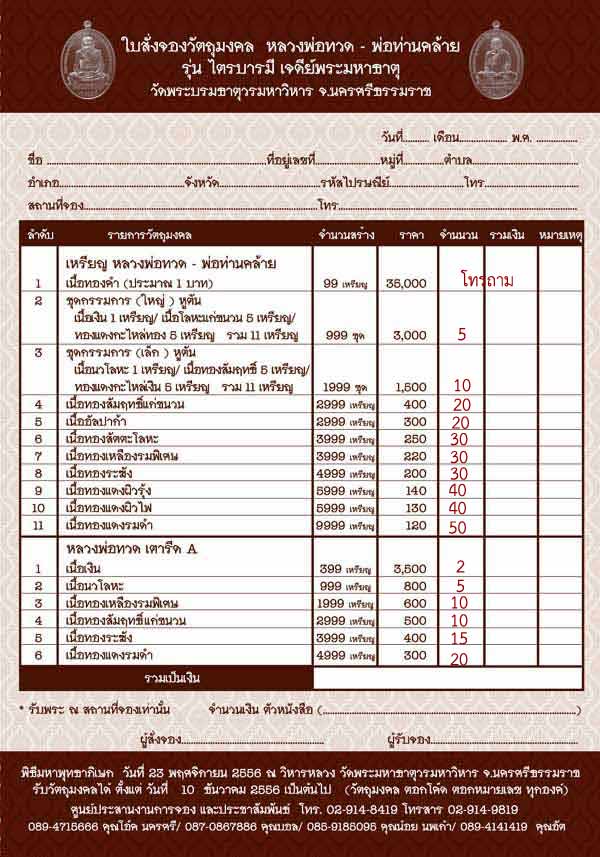 ใบสั่งจองวัตถุมงคล หลวงพ่อทวด - พ่อท่านคล้าย
รุ่น ไตรบารมี เจดีย์พระมหาธาตุ
วัดพระบรมธาตุวรมหาวิหาร จ.นครศรีธรรมราช
วันที่.......... เดือน.................. พ.ศ. ...............
ชื่อ ..................ที่อยู่เลขที่..................หมู่ที่............ตำบล..................
อำเภอ..................จังหวัด..................รหัสไปรษณีย์..................โทร..................
สถานที่จอง..................โทร..................
ลำดับ รายการวัตถุมงคล จำนวนสร้าง ราคา จำนวน รวมเงิน หมายเหตุ
เหรียญ หลวงพ่อทวด - พ่อท่านคล้าย
1 เนื้อทองคำ (ประมาณ 1 บาท) 99 เหรียญ 35,000 โทรถาม
2 ชุดกรรมการ (ใหญ่ ) หูตัน
เนื้อเงิน 1 เหรียญ/ เนื้อโลหะแก่ชนวน 5 เหรียญ/
ทองแดงกะไหล่ทอง 5 เหรียญ รวม 11 เหรียญ 999 ชุด 3,000 5
3 ชุดกรรมการ (เล็ก ) หูตัน
เนื้อนวโลหะ 1 เหรียญ/ เนื้อทองสัมฤทธิ์ 5 เหรียญ/
ทองแดงกะไหล่เงิน 5 เหรียญ รวม 11 เหรียญ 1999 ชุด 1,500 10
4 เนื้อทองสัมฤทธิ์แก่ชนวน 2999 เหรียญ 400 20
5 เนื้ออัลปาก้า 2999 เหรียญ 300 20
6 เนื้อทองสัตตะโลหะ 3999 เหรียญ 250 30
7 เนื้อทองเหลืองรมพิเศษ 3999 เหรียญ 220 30
8 เนื้อทองระฆัง 4999 เหรียญ 200 30
9 เนื้อทองแดงผิวรุ้ง 5999 เหรียญ 140 40
10 เนื้อทองแดงผิวไฟ 5999 เหรียญ 130 40
11 เนื้อทองแดงรมดำ 9999 เหรียญ 120 50
หลวงพ่อทวด เตารีด A
1 เนื้อเงิน 399 เหรียญ 3,500 2
2 เนื้อนวโลหะ 999 เหรียญ 800 5
3 เนื้อทองเหลืองรมพิเศษ 1999 เหรียญ 600 10
4 เนื้อทองสัมฤทธิ์แก่ชนวน 2999 เหรียญ 500 10
5 เนื้อทองระฆัง 3999 เหรียญ 400 15
6 เนื้อทองแดงรมดำ 4999 เหรียญ 300 20
รวมเป็นเงิน
* รับพระ ณ สถานที่จองเท่านั้น จำนวนเงิน ตัวหนังสือ (....................................)
ผู้สั่งจอง.................................... ผู้รับจอง....................................
พิธีมหาพุทธาภิเษก วันที่ 23 พฤศจิกายน 2556 ณ วิหารหลวง วัดพระมหาธาตุวรมหาวิหาร จ.นครศรีธรรมราช
รับวัตถุมงคลได้ ตั้งแต่ วันที่ 10 ธันวาคม 2556 เป็นต้นไป (วัตถุมงคล ตอกโค๊ด ตอกหมายเลข ทุกองค์)
ศูนย์ประสานงานการจอง และประชาสัมพันธ์ โทร. 02-914-8419 โทรสาร 02-914-9819
089-4715666 คุณโอ๋ค นครศรี/ 087-0867886 คุณบอล/ 085-9185095 คุณน้อย นพเก้า/ 089-4141419 คุณอัต